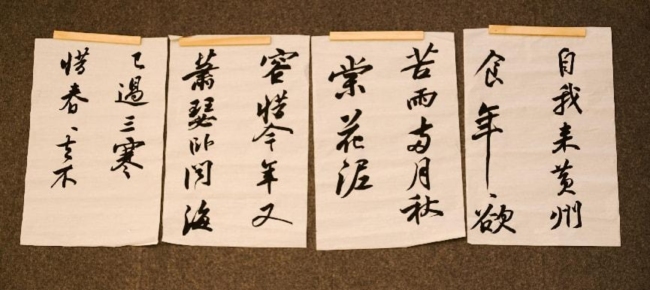 自我来黄州
食年、欲
苦雨两月秋
棠花泥
容惜今年又
蕭瑟卧闻海
已過三寒
惜春、去不